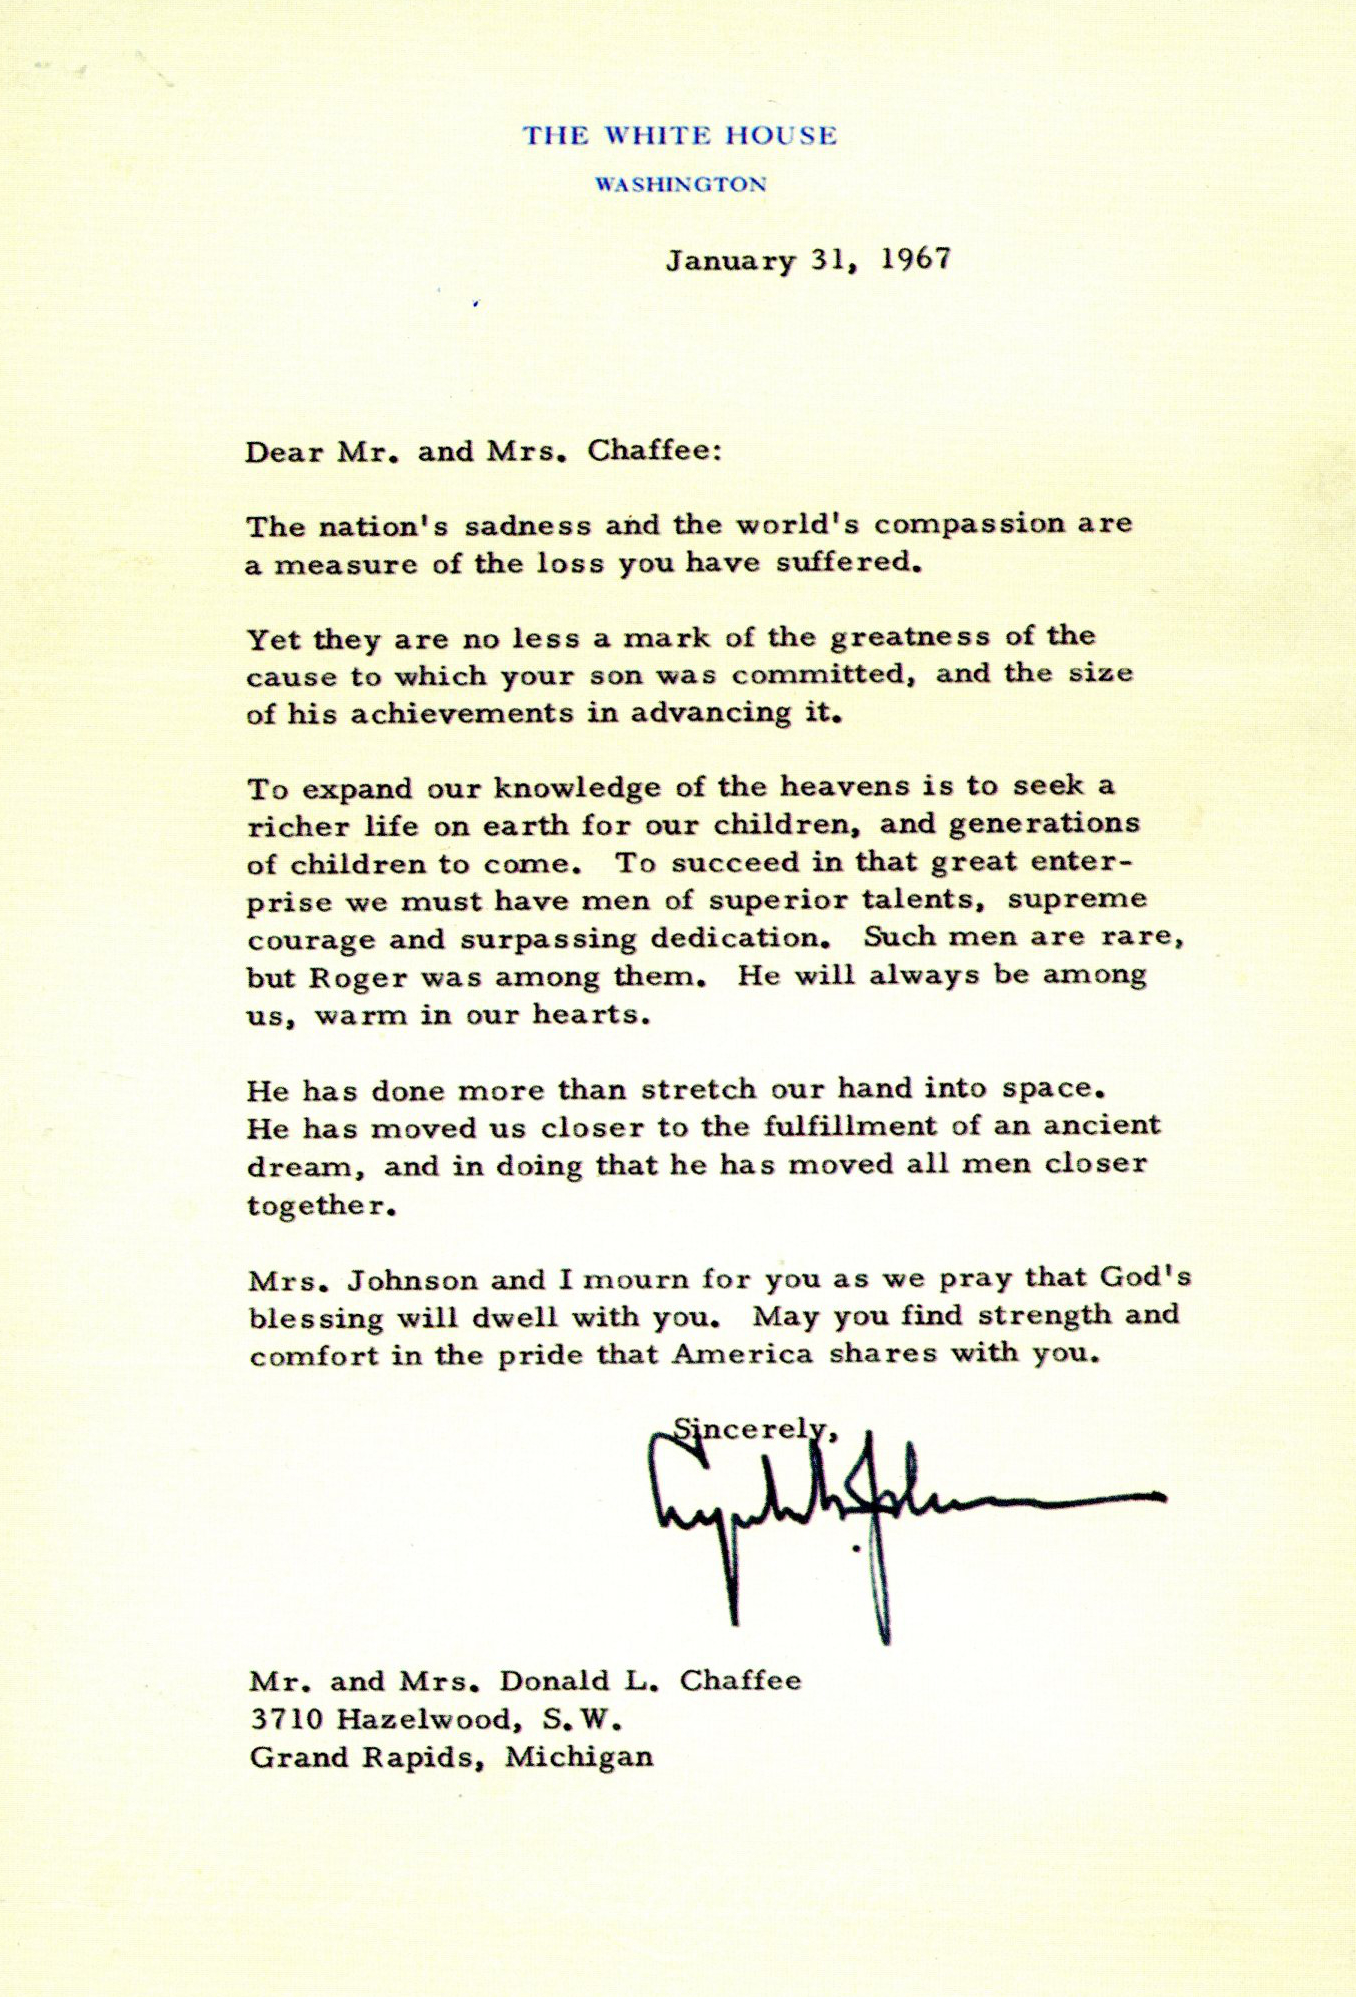 THE WHITE HOUSE
WASHINGTON
January 31, 1967
Dear Mr. and Mrs. Chaffee:
The nation's sadness and the world's compassion are
a measure of the loss you have suffered.
Yet they are no less a mark of the greatness of the
cause to which your son was committed, and the size
of his achievements in advancing it.
To expand our knowledge of the heavens is to seek a
richer life on earth for our children, and generations
of children to come. To succeed in that great enter-
prise we must have men of superior talents, supreme
courage and surpassing dedication. Such men are rare,
but Roger was among them. He will always be among
us, warm in our hearts.
He has done more than stretch our hand into space.
He has moved us closer to the fulfillment of an ancient
dream, and in doing that he has moved all men closer
together.
Mrs. Johnson and I mourn for you as we pray that God's
blessing will dwell with you. May you find strength and
comfort in the pride that America shares with you.
Sincerely,
Mr. and Mrs. Donald L. Chaffee
3710 Hazelwood, S.W.
Grand Rapids, Michigan